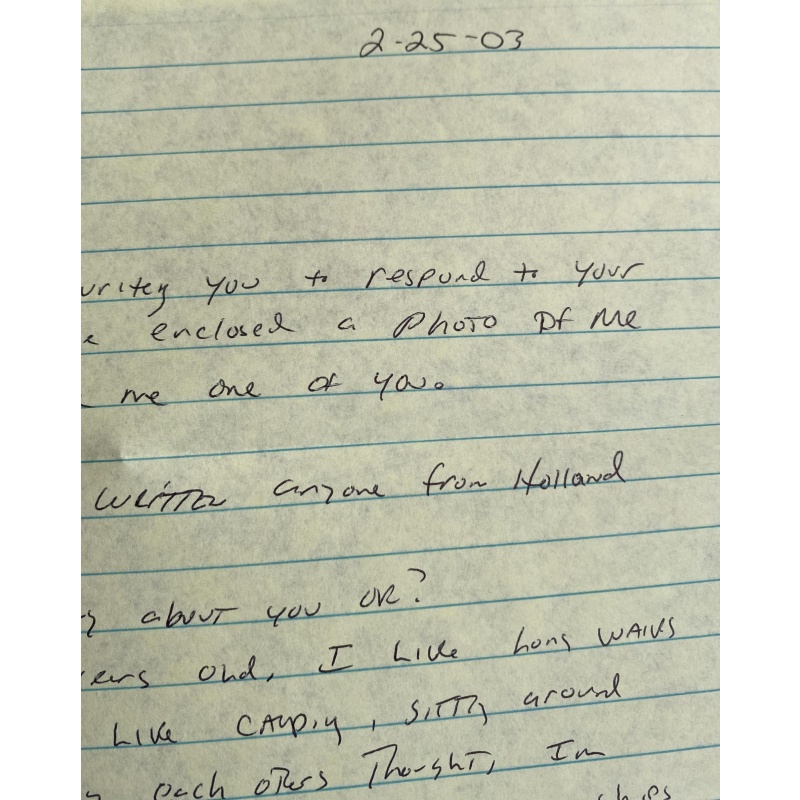 2-25-03
you to respond to your
enclosed a Photo of Me
me one of you.
written anyone from Holland
about you OK?
old, I Like Long WALKS
Like CAMPING, SITTING around
each others Thoughts, Im